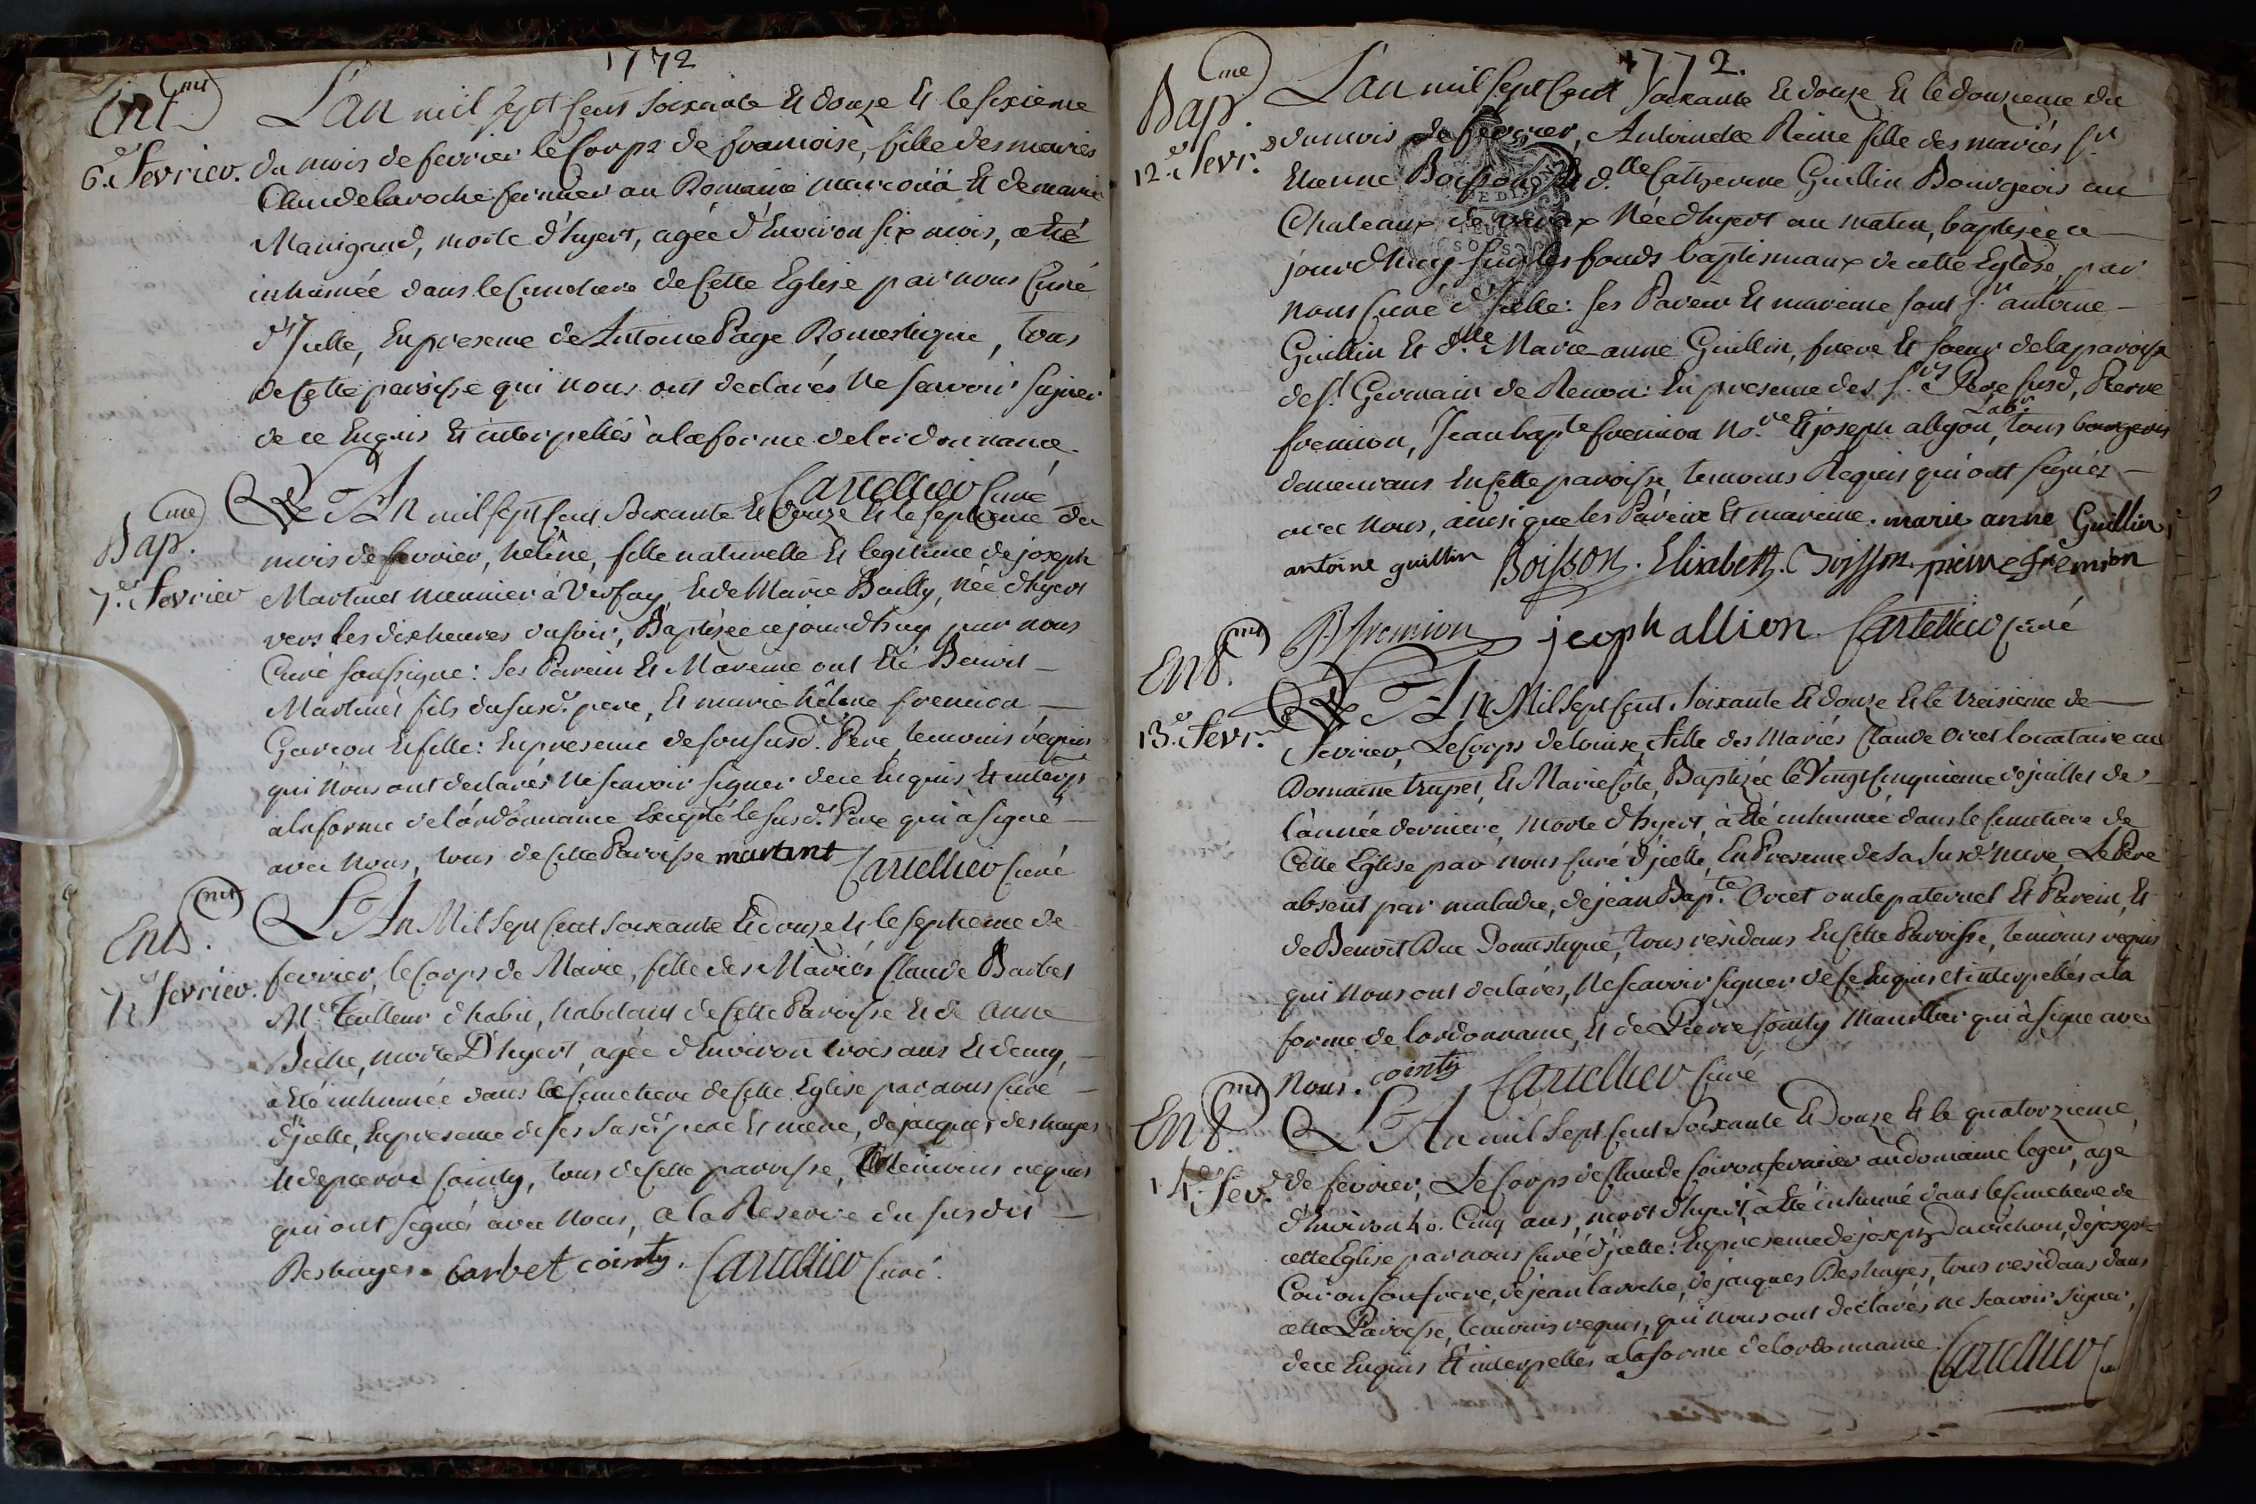 1772
Ent.mt
6.e fevrier.
L'an mil sept cent soixante et douze et le sixieme
du mois de fevrier le Corps de francoise, fille des mariés
Claude laroche fermier au Domaine et de marie
Manigand, morte d'hyert, agée d'Environ six mois, a eté
inhumée dans le Cimetiere de Cette Eglise par nous Curé
d'Icelle, En presence de Antoine Page Domestique, tous
de Cette paroisse qui nous ont declarés Ne scavoir signer
de ce Enquis Et interpellés a la forme de lordonnance.
Cartellier Curé
Bap.me
7.e fevrier
L'An mil sept Cent Soixante Et Douze Et le septieme du
mois de fevrier, heléne, fille naturelle Et legitime de joseph
Martinet meunier à Verfay, Et de Marie Bailly, Née d'hyert
vers les dix heures du soir, Baptisée ce jourdhuy par nous
Curé soussigné: Ses Parein Et Mareine ont Eté Benoit
Martinet fils du susd. pere, Et marie heléne fremion
Garcon Et fille: En presence de son susd. Pere, temoins requis
qui Nous ont declarés Ne scavoir signer de ce Enquis, Et interp.
a la forme de l'ordonnance Excepté le susd. Pere qui à signé
avec Nous, tous de Cette Paroisse martinet Cartellier Curé
Ent.mt
7.e fevrier.
L'An Mil Sept Cent Soixante Et douze Et le septieme de
fevrier, le Corps de Marie, fille des Mariés Claude Barbet
M.e Tailleur d'habit, habitant de Cette Paroisse Et de Anne
morte D'hyert, agée d'Environ trois ans Et demy,
a Eté inhumée dans le Cimetiere de Cette Eglise par nous Curé
d'jcelle, En presence de ses susd. pere Et mere, de jacques deshayes
Et de pierre Cointy, tous de Cette paroisse, temoins requis
qui ont signés avec Nous, a la Reserve du susdit
Deshayes. barbet cointy. Cartellier Curé.
1772.
Bap.me
12.e fevr.
L'an mil Sept Cent Soixante Et douze Et le douzieme du
du mois de fevrier, Antoinette Reine fille des mariés S.r
Etienne Boisson Et d.lle Catherine Guillin Bourgeois au
Chateaux de Née d'hyert au matin, baptisée ce
jourd'huy sur les fonds baptismaux de cette Eglise, par
Nous Curé d'Icelle: Ses Parein Et mareine sont S.r antoine
Guillin Et d.lle Marie-anne Guillin, frere Et soeur de la paroisse
de S.t Germain de Renon: En presence des S.rs Pere susd, Pierre
fremion, Jean bap.te fremion No.re Et joseph allyon, Lab.r tous bourgeois
demeurans En Cette paroisse temoins Requis qui ont signés
avec Nous, ainsi que les Pareine Et mareine. marie anne Guillin,
antoine guillin Boisson. Elisabeth. Boisson. pierre fremion
B fremion jeoph allion. Cartellier curé
Ent.mt
13.e fevr.
L'An Mil Sept Cent Soixante Et douze Et le treisieme de
fevrier, Le Corps de louise, fille des Mariés Claude Orcet locataire au
Domaine trupet, Et Marie Cote, Baptisée le Vingt Cinquieme de juillet de
l'année derniere, Morte d'hyert, à Eté inhumée dans le Cimetiere de
Cette Eglise par Nous Curé d'jcelle, En Presence de Sa Susd. mere, Le Pere
absent par maladie, de jean Bap.te Orcet oncle paternel Et Parein, Et
de Benoit Duc Domestique, tous residans En Cette Paroisse, temoins requis
qui Nous ont declarés, Ne scavoir signer de Ce Enquis et interpellés a la
forme de lordonnance, Et de Pierre Cointy Manillier qui à signé avec
Nous. cointy Cartellier Curé
Ent.mt
14.e fev.
L'An mil Sept Cent Soixante Et Douze Et le quatorzieme
de fevrier, Le Corps de Claude Coiron fermier au domaine leger, agé
d'Environ 40. Cinq ans, mort d'hyert à Eté inhumé dans le Cimetiere de
cette Eglise par nous Curé d'jcelle: En presence de joseph Davichon, de joseph
Coiron son frere, de jean laroche, de jacques Deshayes, tous residans dans
cette Paroisse, temoins requis, qui Nous ont declarés ne scavoir signer,
de ce Enquis Et interpellés a la forme de lordonnance. Cartellier